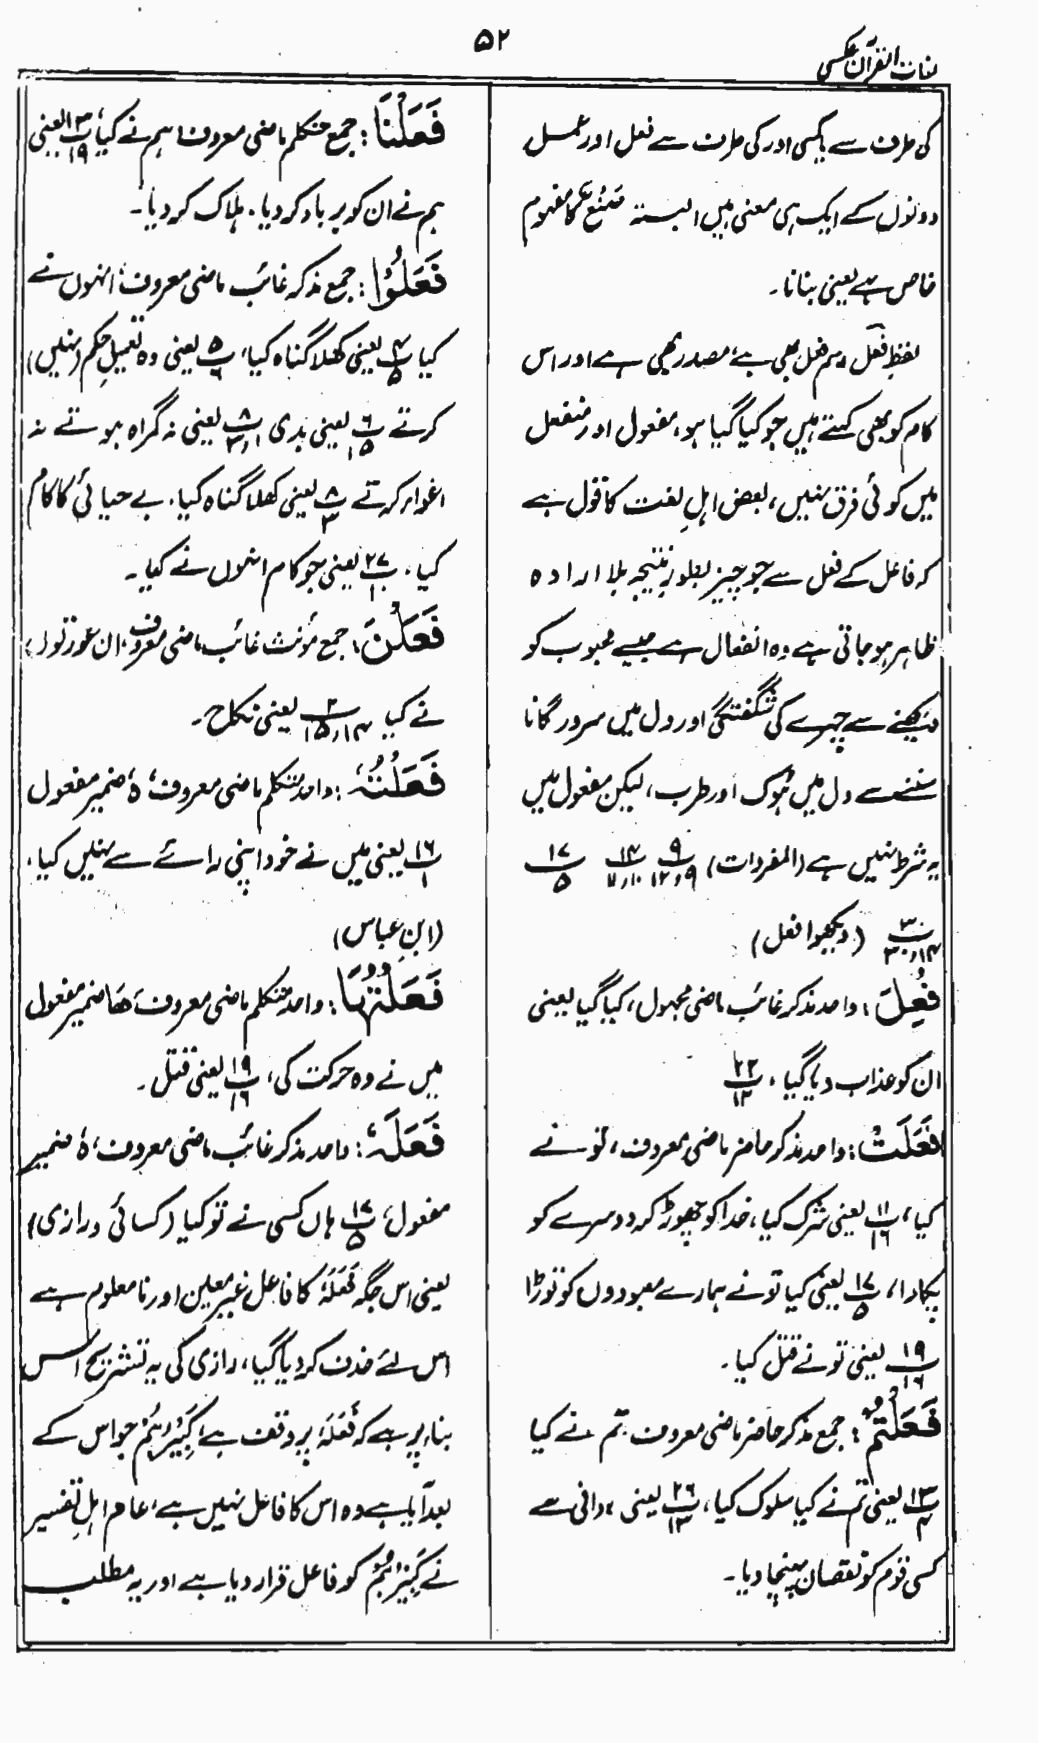 ۵۲
لغات القرآن عکسی
کی طرف سے یا کسی اور کی طرف سے فعل اور عمل
دونوں کے ایک ہی معنی ہیں البتہ صُنْع کا مفہوم
خاص ہے یعنی بنانا۔
لفظ فعل اسم فعل بھی ہے، مصدر بھی ہے اور اس
کام کو بھی کہتے ہیں جو کیا گیا ہو، مفعول اور منفعل
میں کوئی فرق نہیں، بعض اہلِ لغت کا قول ہے
کہ فاعل کے فعل سے جو چیز بطور نتیجہ بلا ارادہ
ظاہر ہو جاتی ہے وہ انفعال ہے جیسے محبوب کو
دیکھنے سے چہرے کی شگفتگی اور دل میں سرور گانا
سننے سے دل میں ہُوک اور طرب، لیکن مفعول میں
یہ شرط نہیں ہے (المفردات) پ۹ ۹، ۱۲ پ۱۴ ۱۰، ۷ پ۱۷ ۵
پ۳۰ ۱۴، ۳۰ (دیکھو افعل)
فُعِلَ: واحد مذکر غائب ماضی مجہول، کیا گیا یعنی
ان کو عذاب دیا گیا، پ۲۲ ۱۲
فَعَلْتَ: واحد مذکر حاضر ماضی معروف، تو نے
کیا، پ۱۱ ۱۶ یعنی شرک کیا، خدا کو چھوڑ کر دوسرے کو
پکارا، پ۱۷ ۵ یعنی کیا تو نے ہمارے معبودوں کو توڑا
پ۱۹ ۶ یعنی تو نے قتل کیا۔
فَعَلْتُمْ: جمع مذکر حاضر ماضی معروف۔ تم نے کیا
پ۱۳ ۴ یعنی تم نے کیا سلوک کیا، پ۲۶ ۱۳ یعنی نادانی سے
کسی قوم کو نقصان پہنچا دیا۔
فَعَلْنَا: جمع متکلم ماضی معروف، ہم نے کیا، پ۱۳ ۱۹ یعنی
ہم نے ان کو برباد کر دیا۔ ہلاک کر دیا۔
فَعَلُوْا: جمع مذکر غائب ماضی معروف، انہوں نے
کیا پ۴ ۵ یعنی کھلا گناہ کیا، پ۵ ۶ یعنی وہ تعمیلِ حکم (نہیں)
کرتے پ۶ ۱۵ یعنی بدی پ۸ یعنی نہ گمراہ ہوتے نہ
اغوا کرتے پ۸ ۳ یعنی کھلا گناہ کیا، بے حیائی کا کام
کیا، پ۲۷ ۱۰ یعنی جو کام انہوں نے کیا۔
فَعَلْنَ: جمع مؤنث غائب ماضی معروف، ان عورتوں
نے کیا پ۲ ۱۴، ۱۵ یعنی نکاح۔
فَعَلْتُہٗ: واحد متکلم ماضی معروف، ہٗ ضمیر مفعول
پ۱۶ ۱ یعنی میں نے خود اپنی رائے سے نہیں کیا،
(ابنِ عباس)
فَعَلْتُہَا: واحد متکلم ماضی معروف، ھَا ضمیر مفعول
میں نے وہ حرکت کی، پ۱۹ ۶ یعنی قتل۔
فَعَلَہٗ: واحد مذکر غائب ماضی معروف، ہٗ ضمیر
مفعول، پ۱۷ ۵ ہاں کسی نے تو کیا (کسائی و رازی)
یعنی اس جگہ فَعَلَہٗ کا فاعل غیر معین اور نامعلوم ہے
اس لئے حذف کر دیا گیا، رازی کی یہ تشریح اس
بناء پر ہے کہ فَعَلَہٗ پر وقف ہے، کَبِیْرُہُمْ جو اس کے
بعد آیا ہے وہ اس کا فاعل نہیں ہے، عام اہلِ تفسیر
نے کَبِیْرُہُمْ کو فاعل قرار دیا ہے اور یہ مطلب